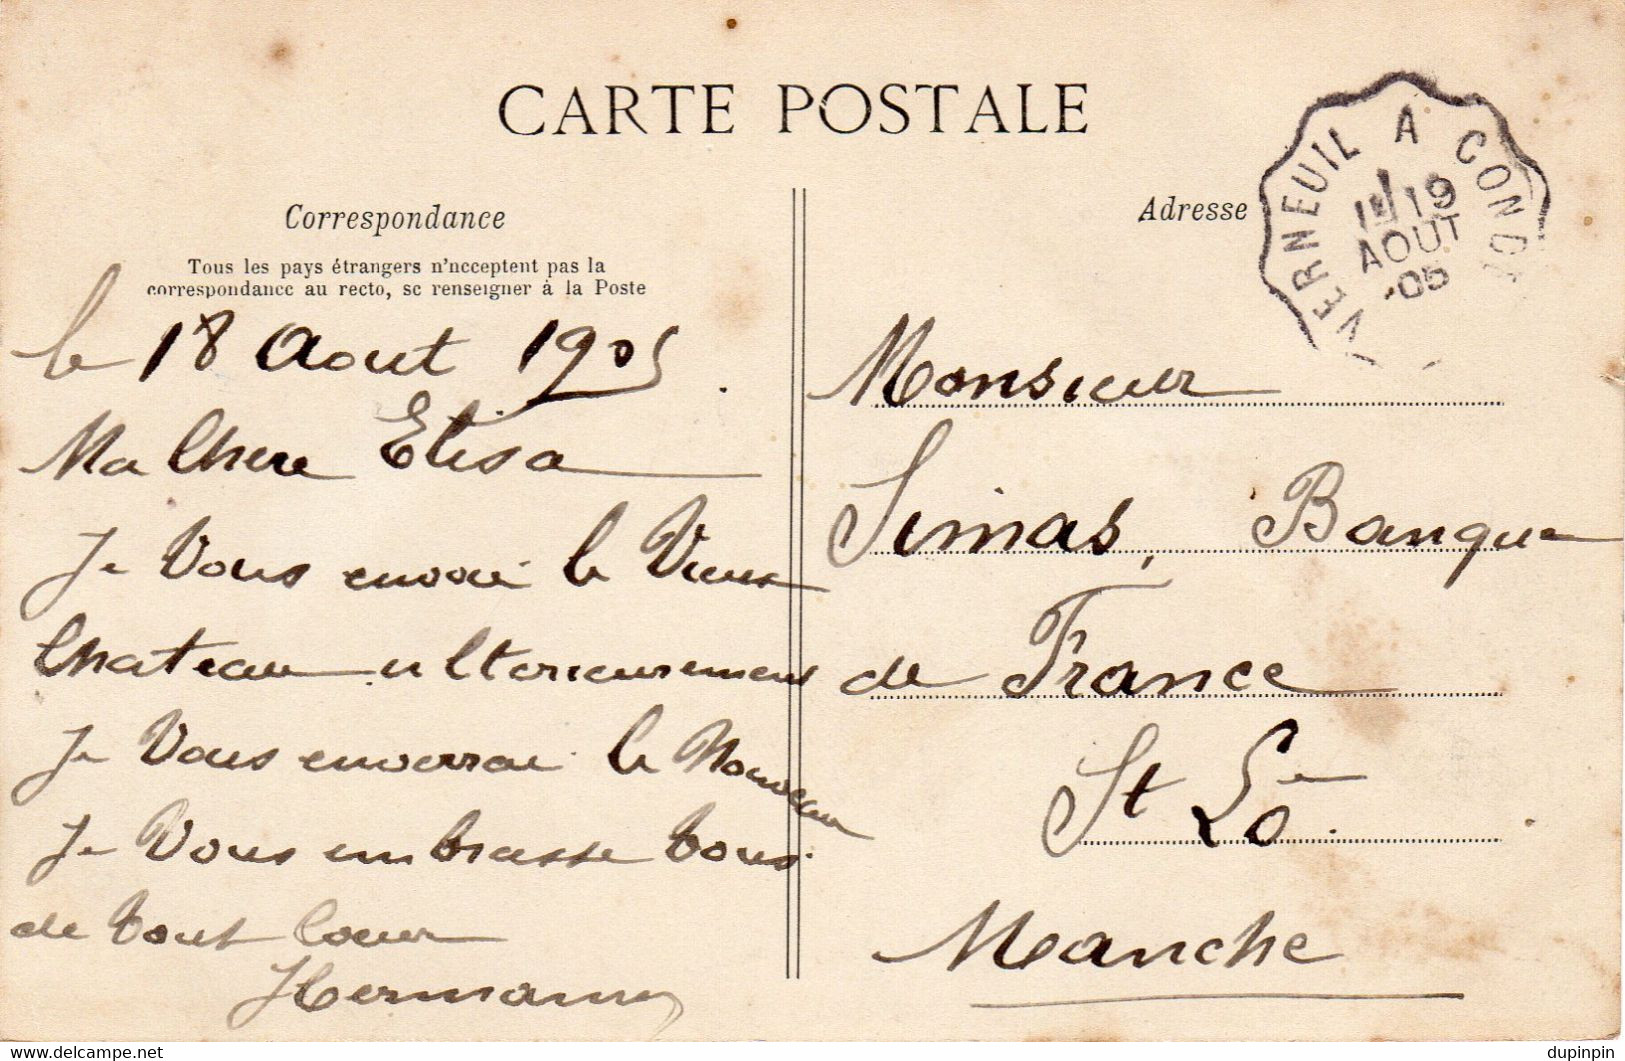 CARTE POSTALE
Correspondance
Tous les pays étrangers n'ncceptent pas la
correspondance au recto, se renseigner à la Poste
le 18 Aout 1905.
Ma Chere Elisa
Je Vous envoie le Vieux
Chateau ulterieurement
Je Vous enverrai le Nouveau
Je Vous embrasse tous
de tout Coeur
Hermann
Adresse
VERNEUIL A CONDE
19
AOUT
05
Monsieur
Simas, Banque
de France
St Lo.
Manche
www.delcampe.net
dupinpin